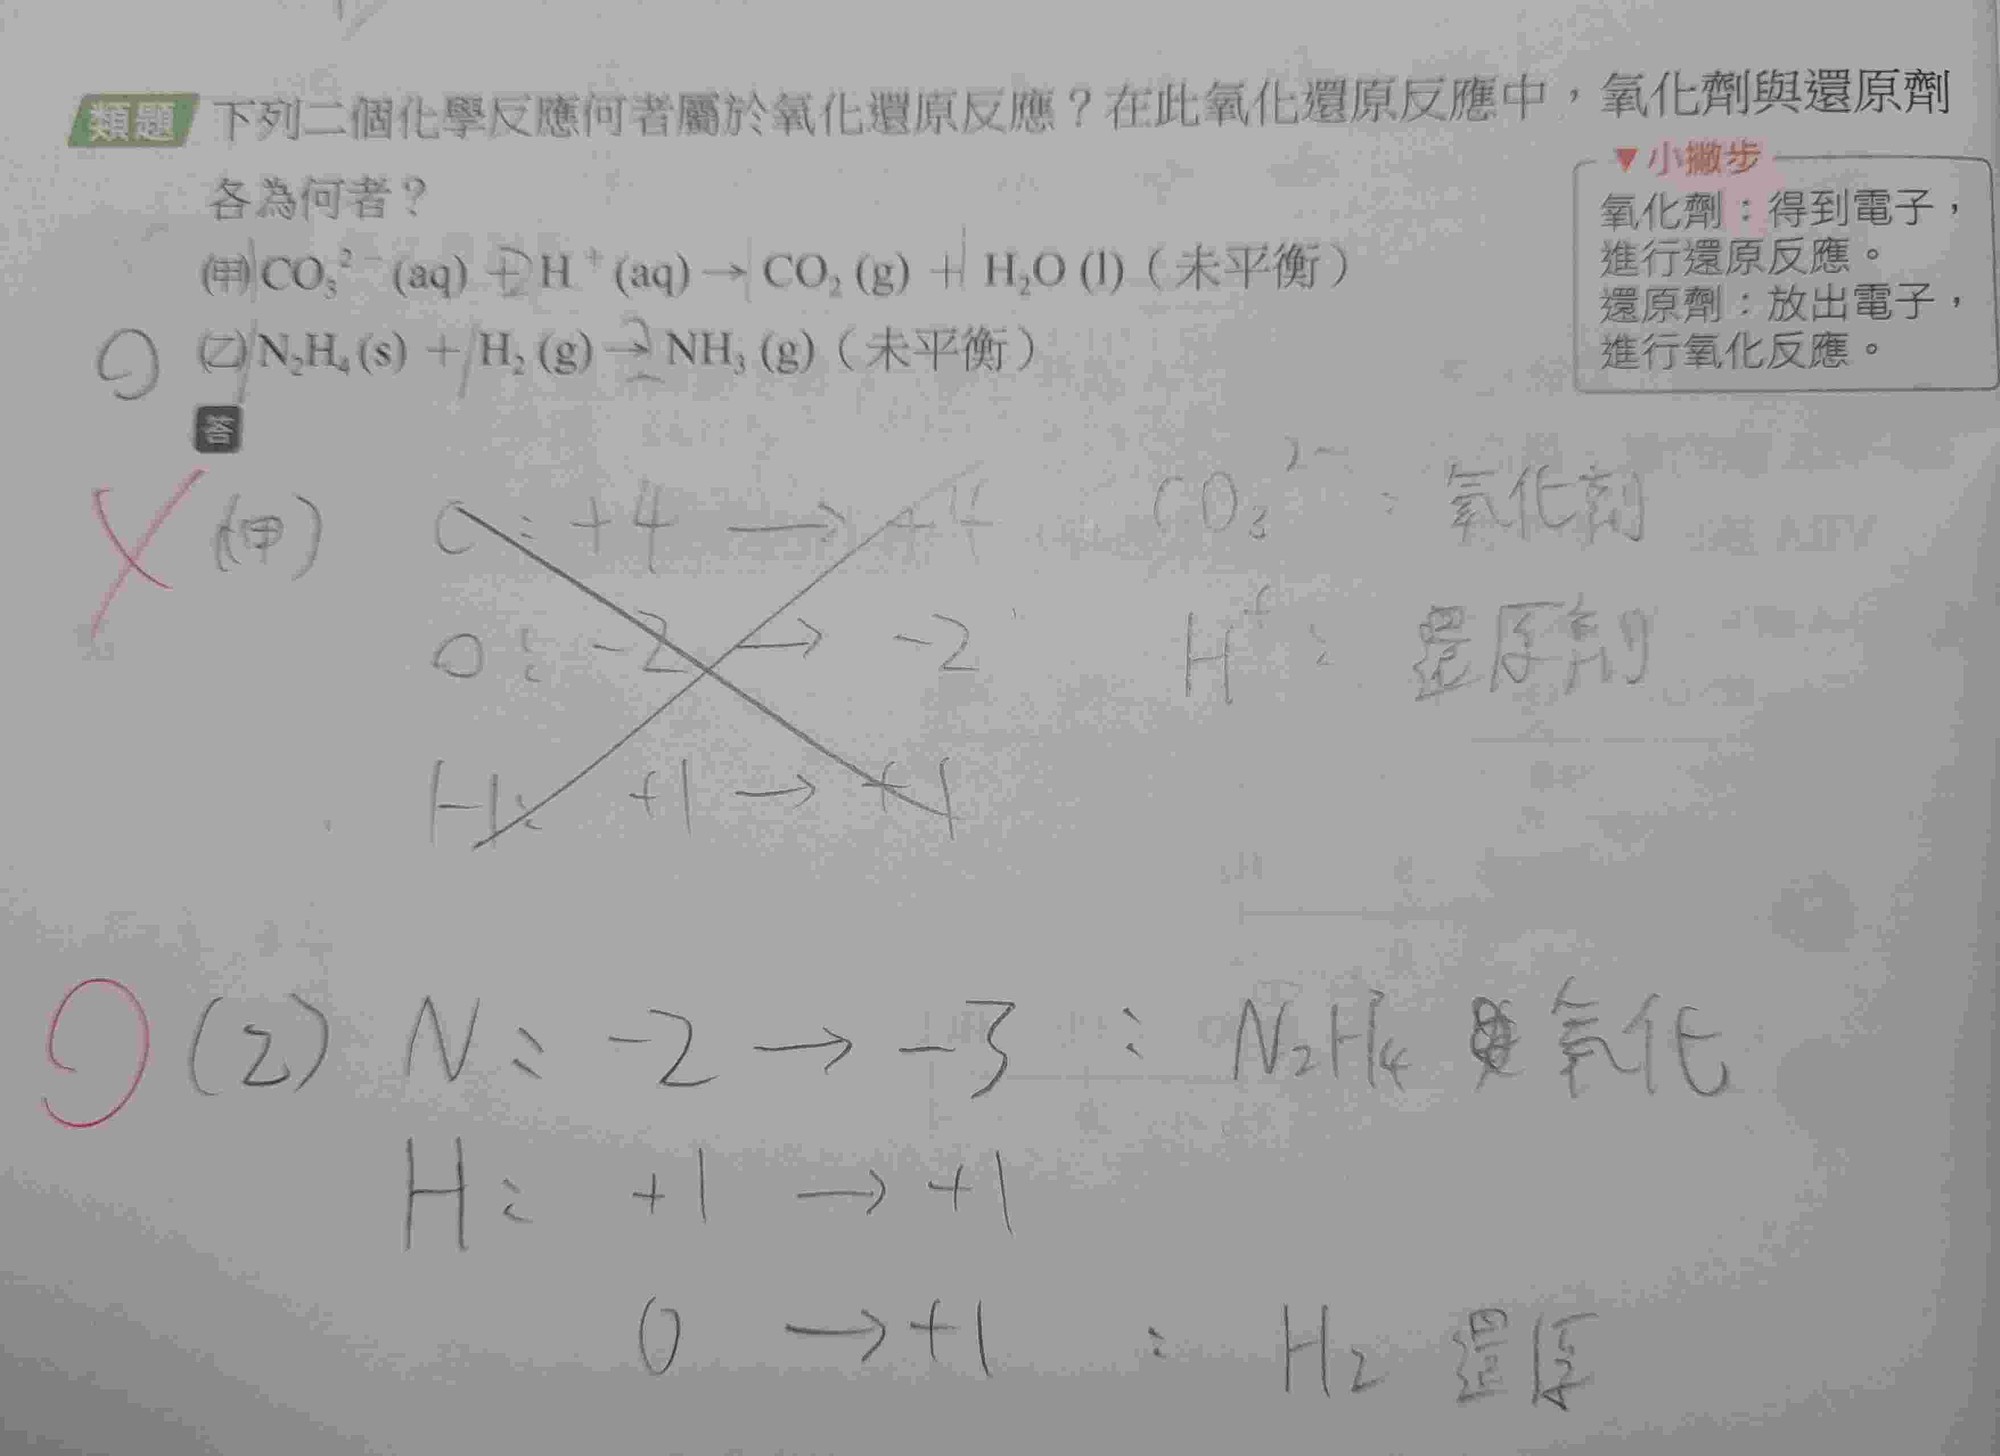 類題 下列二個化學反應何者屬於氧化還原反應？在此氧化還原反應中，氧化劑與還原劑
各為何者？
▼小撇步
氧化劑：得到電子，
進行還原反應。
還原劑：放出電子，
進行氧化反應。
(甲) CO₃²⁻ (aq) + 2H⁺ (aq) → CO₂ (g) + H₂O (l)（未平衡）
(乙) N₂H₄ (s) + H₂ (g) → 2NH₃ (g)（未平衡）
答
(甲) C: +4 → +4 CO₃²⁻ : 氧化劑
O: -2 → -2 H⁺ : 還原劑
H: +1 → +1
(乙) N: -2 → -3 : N₂H₄ 氧化
H: +1 → +1
0 → +1 : H₂ 還原